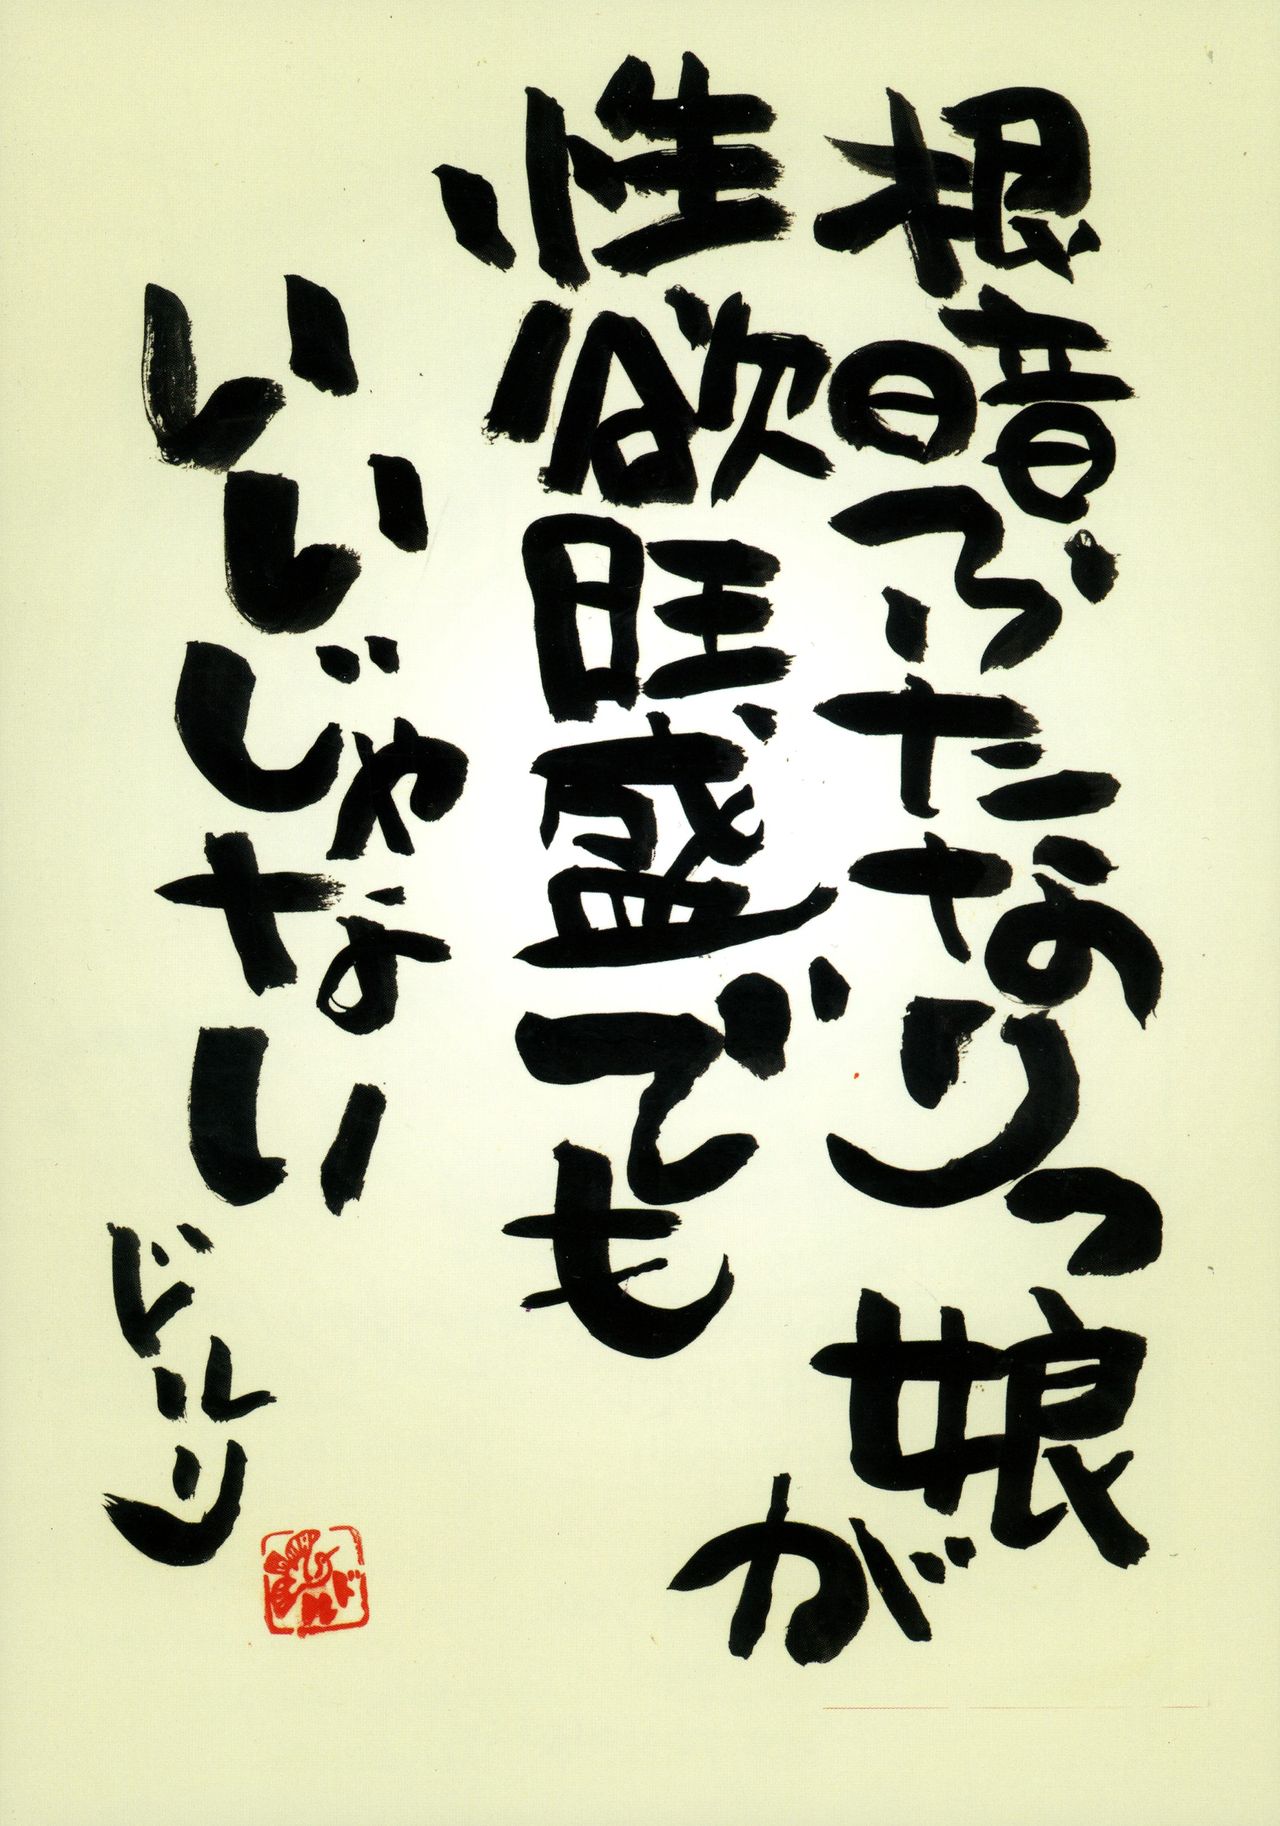 根暗ふたなりっ娘が
性欲旺盛でも
いいじゃない
ドルリ